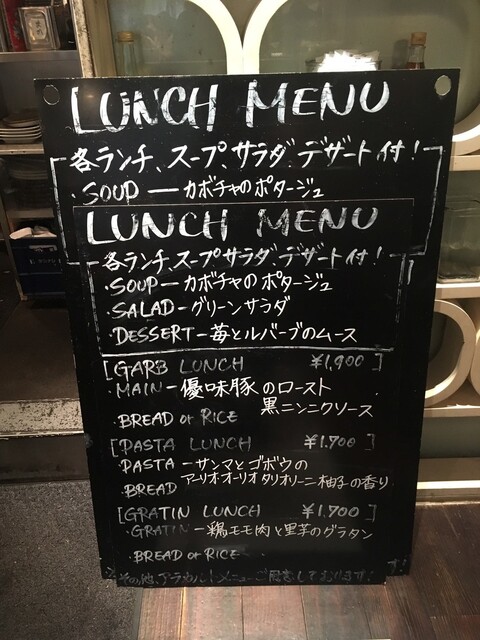 LUNCH MENU
各ランチ、スープ、サラダ、デザート付!
・SOUP ― カボチャのポタージュ
LUNCH MENU
各ランチ、スープ、サラダ、デザート付!
・SOUP ― カボチャのポタージュ
・SALAD ― グリーンサラダ
・DESSERT ― 苺とルバーブのムース
[GARB LUNCH ¥1,900]
・MAIN ― 優味豚のロースト
黒ニンニクソース
・BREAD or RICE
[PASTA LUNCH ¥1,700]
・PASTA ― サンマとゴボウの
アーリオ・オーリオ タリオリーニ 柚子の香り
・BREAD
[GRATIN LUNCH ¥1,700]
・GRATIN ― 鶏モモ肉と里芋のグラタン
・BREAD or RICE
※その他、アラカルトメニューご用意しております!